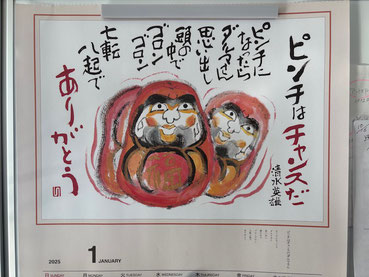 ピンチはチャンスだ
清水英雄
ピンチに
なったら
ダルマさん
思い出し
頭の中で
ゴロン
ゴロン
七転
八起で
ありがとう
2025
1 JANUARY
SUNDAY MONDAY TUESDAY WEDNESDAY THURSDAY FRIDAY SATURDAY